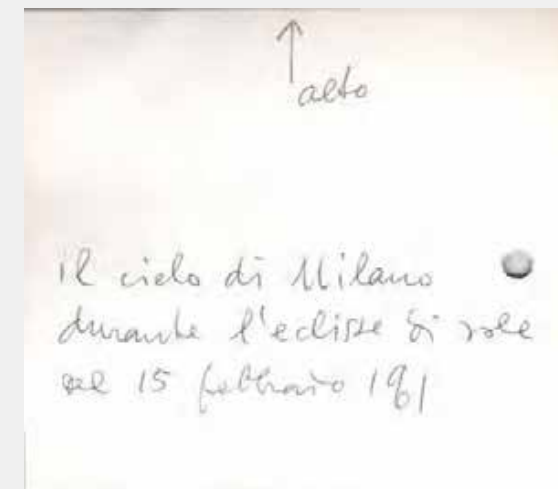 alto
il cielo di Milano
durante l'eclisse di sole
del 15 febbraio 1961